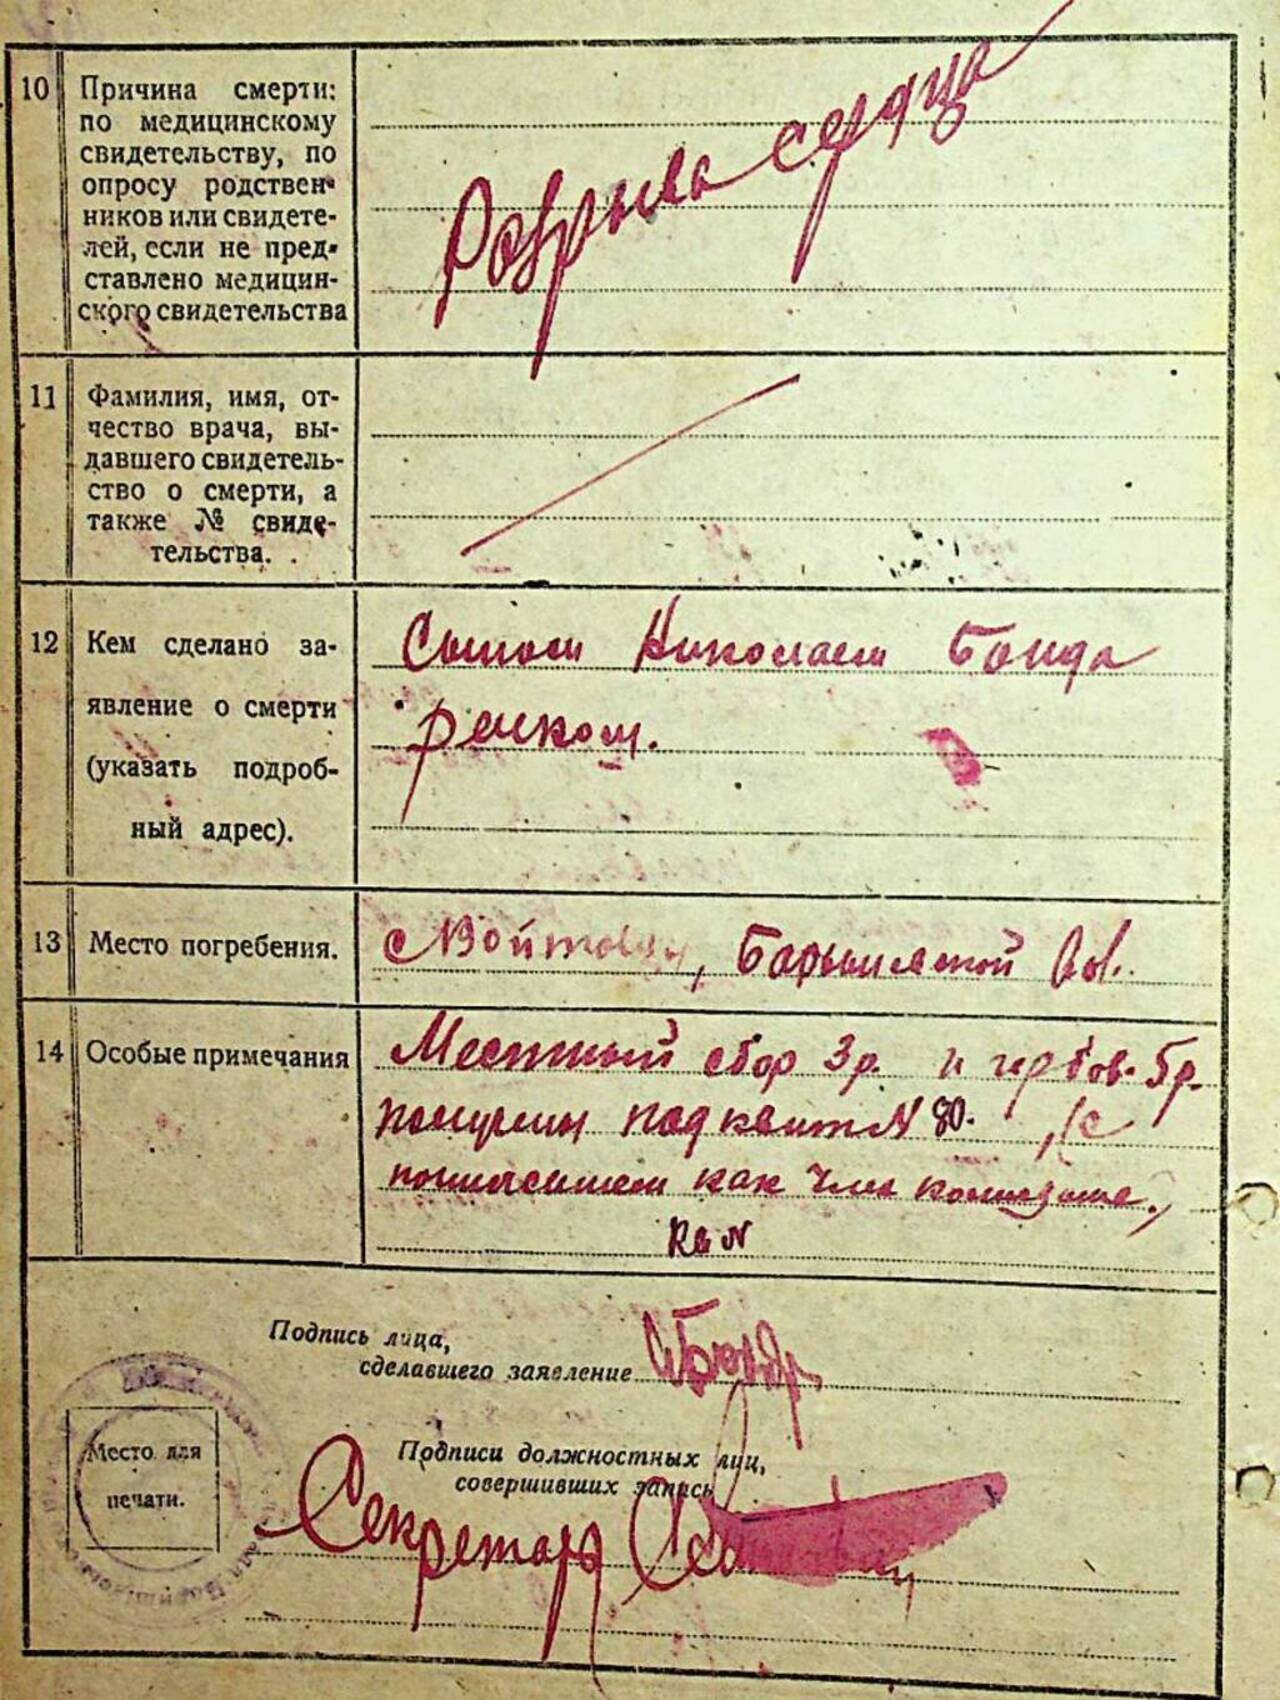 10 Причина смерти:
по медицинскому
свидетельству, по
опросу родствен-
ников или свидете-
лей, если не пред-
ставлено медицин-
ского свидетельства
Розрыва сердца
11 Фамилия, имя, от-
чество врача, вы-
давшего свидетель-
ство о смерти, а
также № свиде-
тельства.
12 Кем сделано за-
явление о смерти
(указать подроб-
ный адрес).
Сыном Николаем Бонда
ренком.
13 Место погребения.
Войтовцы, Барышевской вол.
14 Особые примечания
Местный сбор 3р. и гербов. 5р.
получены под квит N 80.
как члена
Кв N
Подпись лица,
сделавшего заявление
Место для
печати.
Подписи должностных лиц,
совершивших запись
Секретарь